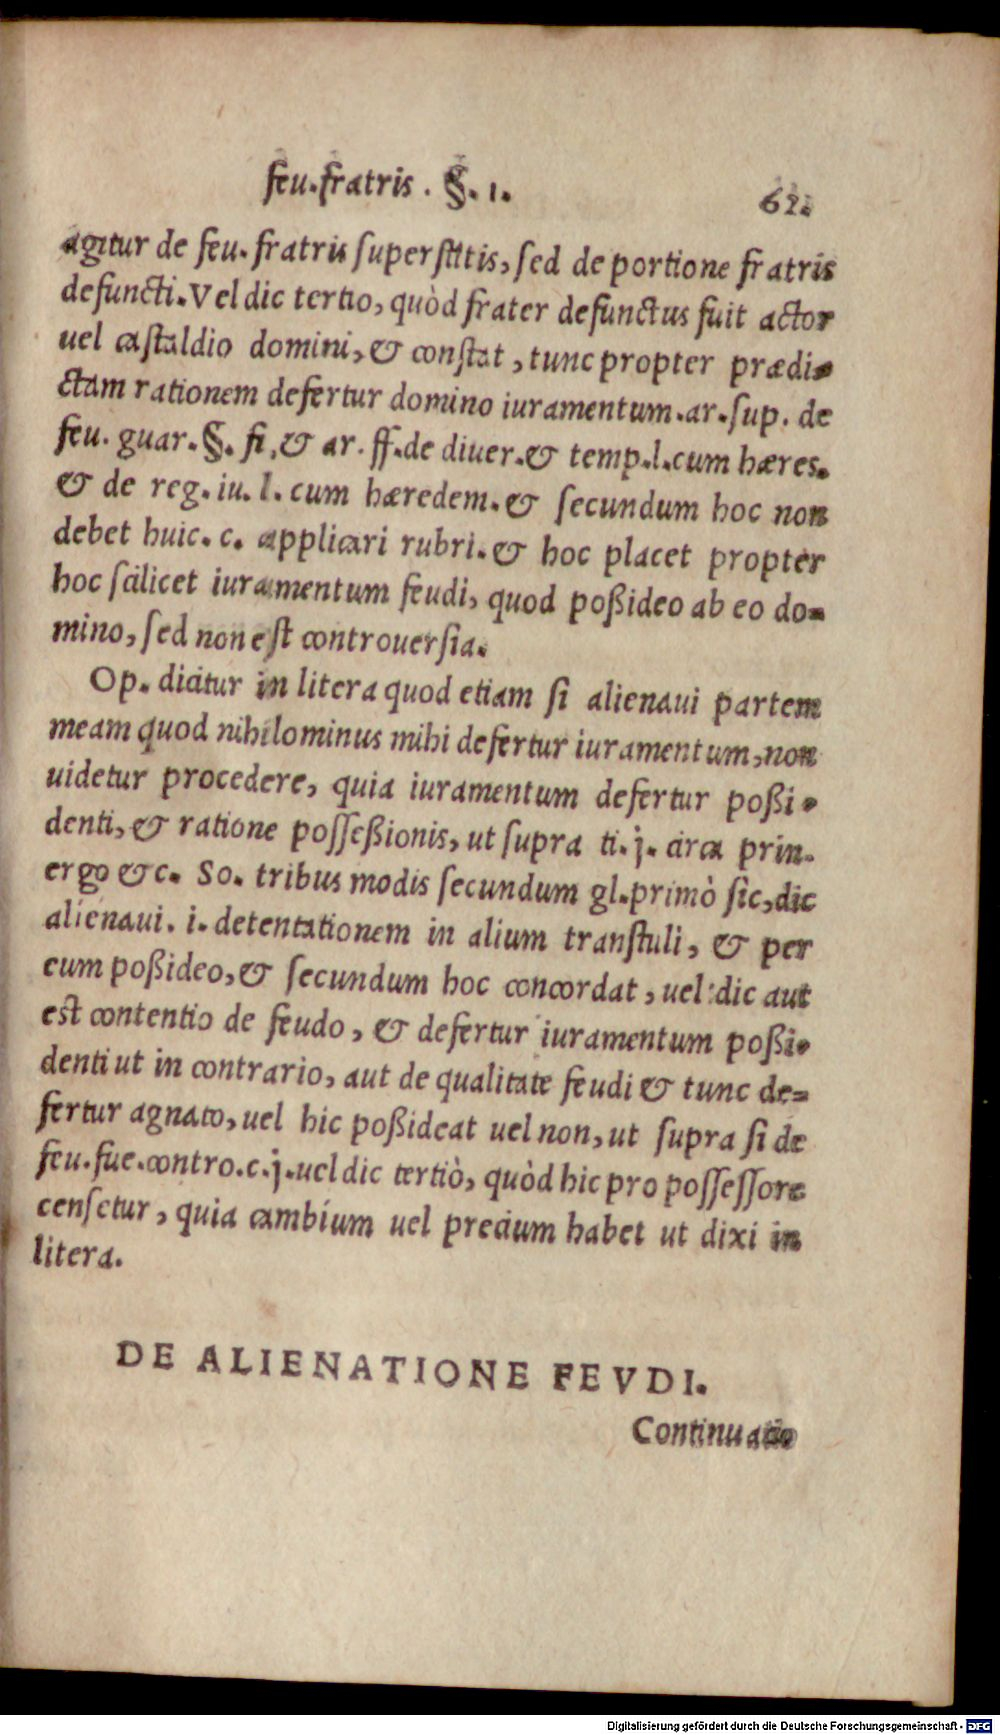 feu.fratris . §. 1.
62.
agitur de feu. fratris superstitis, sed de portione fratris
defuncti. Vel dic tertio, quòd frater defunctus fuit actor
uel castaldio domini, & constat, tunc propter prædi-
ctam rationem defertur domino iuramentum. ar. sup. de
feu. guar. §. fi, & ar. ff. de diuer. & temp. l. cum hæres.
& de reg. iu. l. cum hæredem. & secundum hoc non
debet huic. c. applicari rubri. & hoc placet propter
hoc scilicet iuramentum feudi, quod poßideo ab eo do=
mino, sed non est controuersia.
Op. dicitur in litera quod etiam si alienaui partem
meam quod nihilominus mihi defertur iuramentum, non
uidetur procedere, quia iuramentum defertur poßi-
denti, & ratione posseßionis, ut supra ti. j. circa prin.
ergo &c. So. tribus modis secundum gl. primò sic, dic
alienaui. i. detentationem in alium transtuli, & per
eum poßideo, & secundum hoc concordat, uel dic aut
est contentio de feudo, & defertur iuramentum poßi-
denti ut in contrario, aut de qualitate feudi & tunc de=
fertur agnato, uel hic poßideat uel non, ut supra si de
feu. fue. contro. c. j. uel dic tertiò, quòd hic pro possessore
censetur, quia cambium uel precium habet ut dixi in
litera.
DE ALIENATIONE FEVDI.
Continuatio
Digitalisierung gefördert durch die Deutsche Forschungsgemeinschaft - DFG